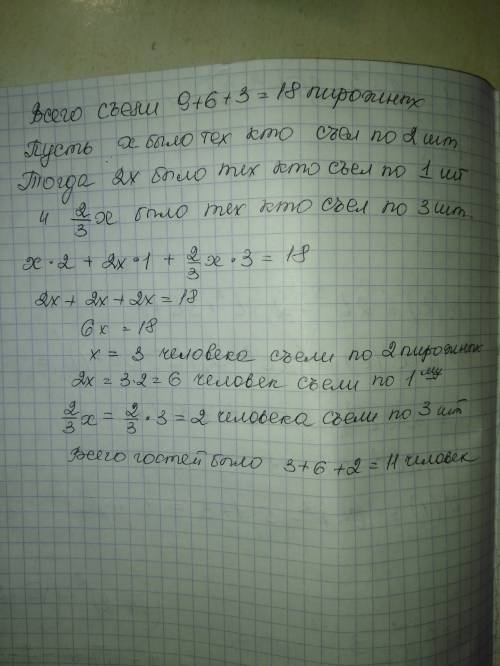 Всего съели 9+6+3 = 18 пирожных
Пусть x было тех кто съел по 2 шт
Тогда 2x было тех кто съел по 1 шт
и 2/3 x было тех кто съел по 3 шт.
x · 2 + 2x · 1 + 2/3 x · 3 = 18
2x + 2x + 2x = 18
6x = 18
x = 3 человека съели по 2 пирожных
2x = 3·2 = 6 человек съели по 1му
2/3 x = 2/3 · 3 = 2 человека съели по 3 шт
Всего гостей было 3+6+2 = 11 человек